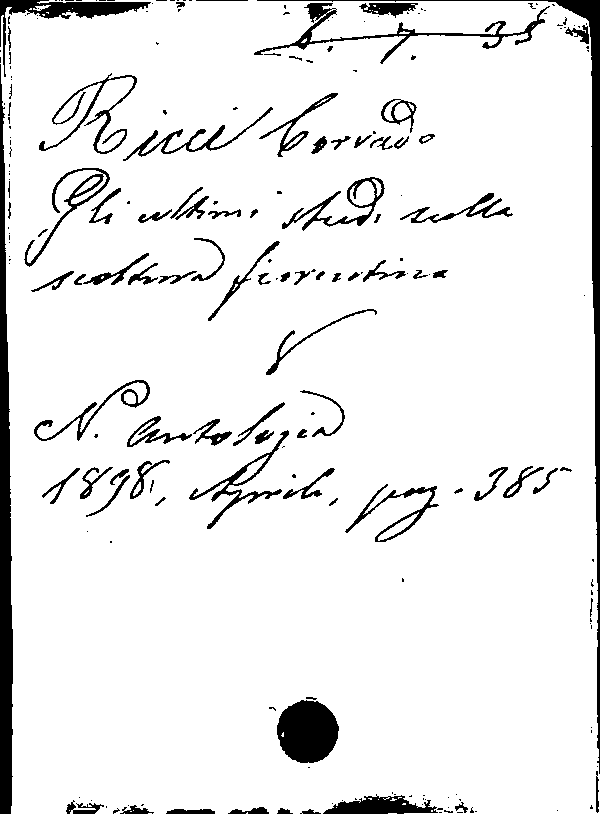 6. 7. 35
Ricci Corrado
Gli ultimi studi sulla
scoltura fiorentina
N. Antologia
1898, Aprile, pag. 385